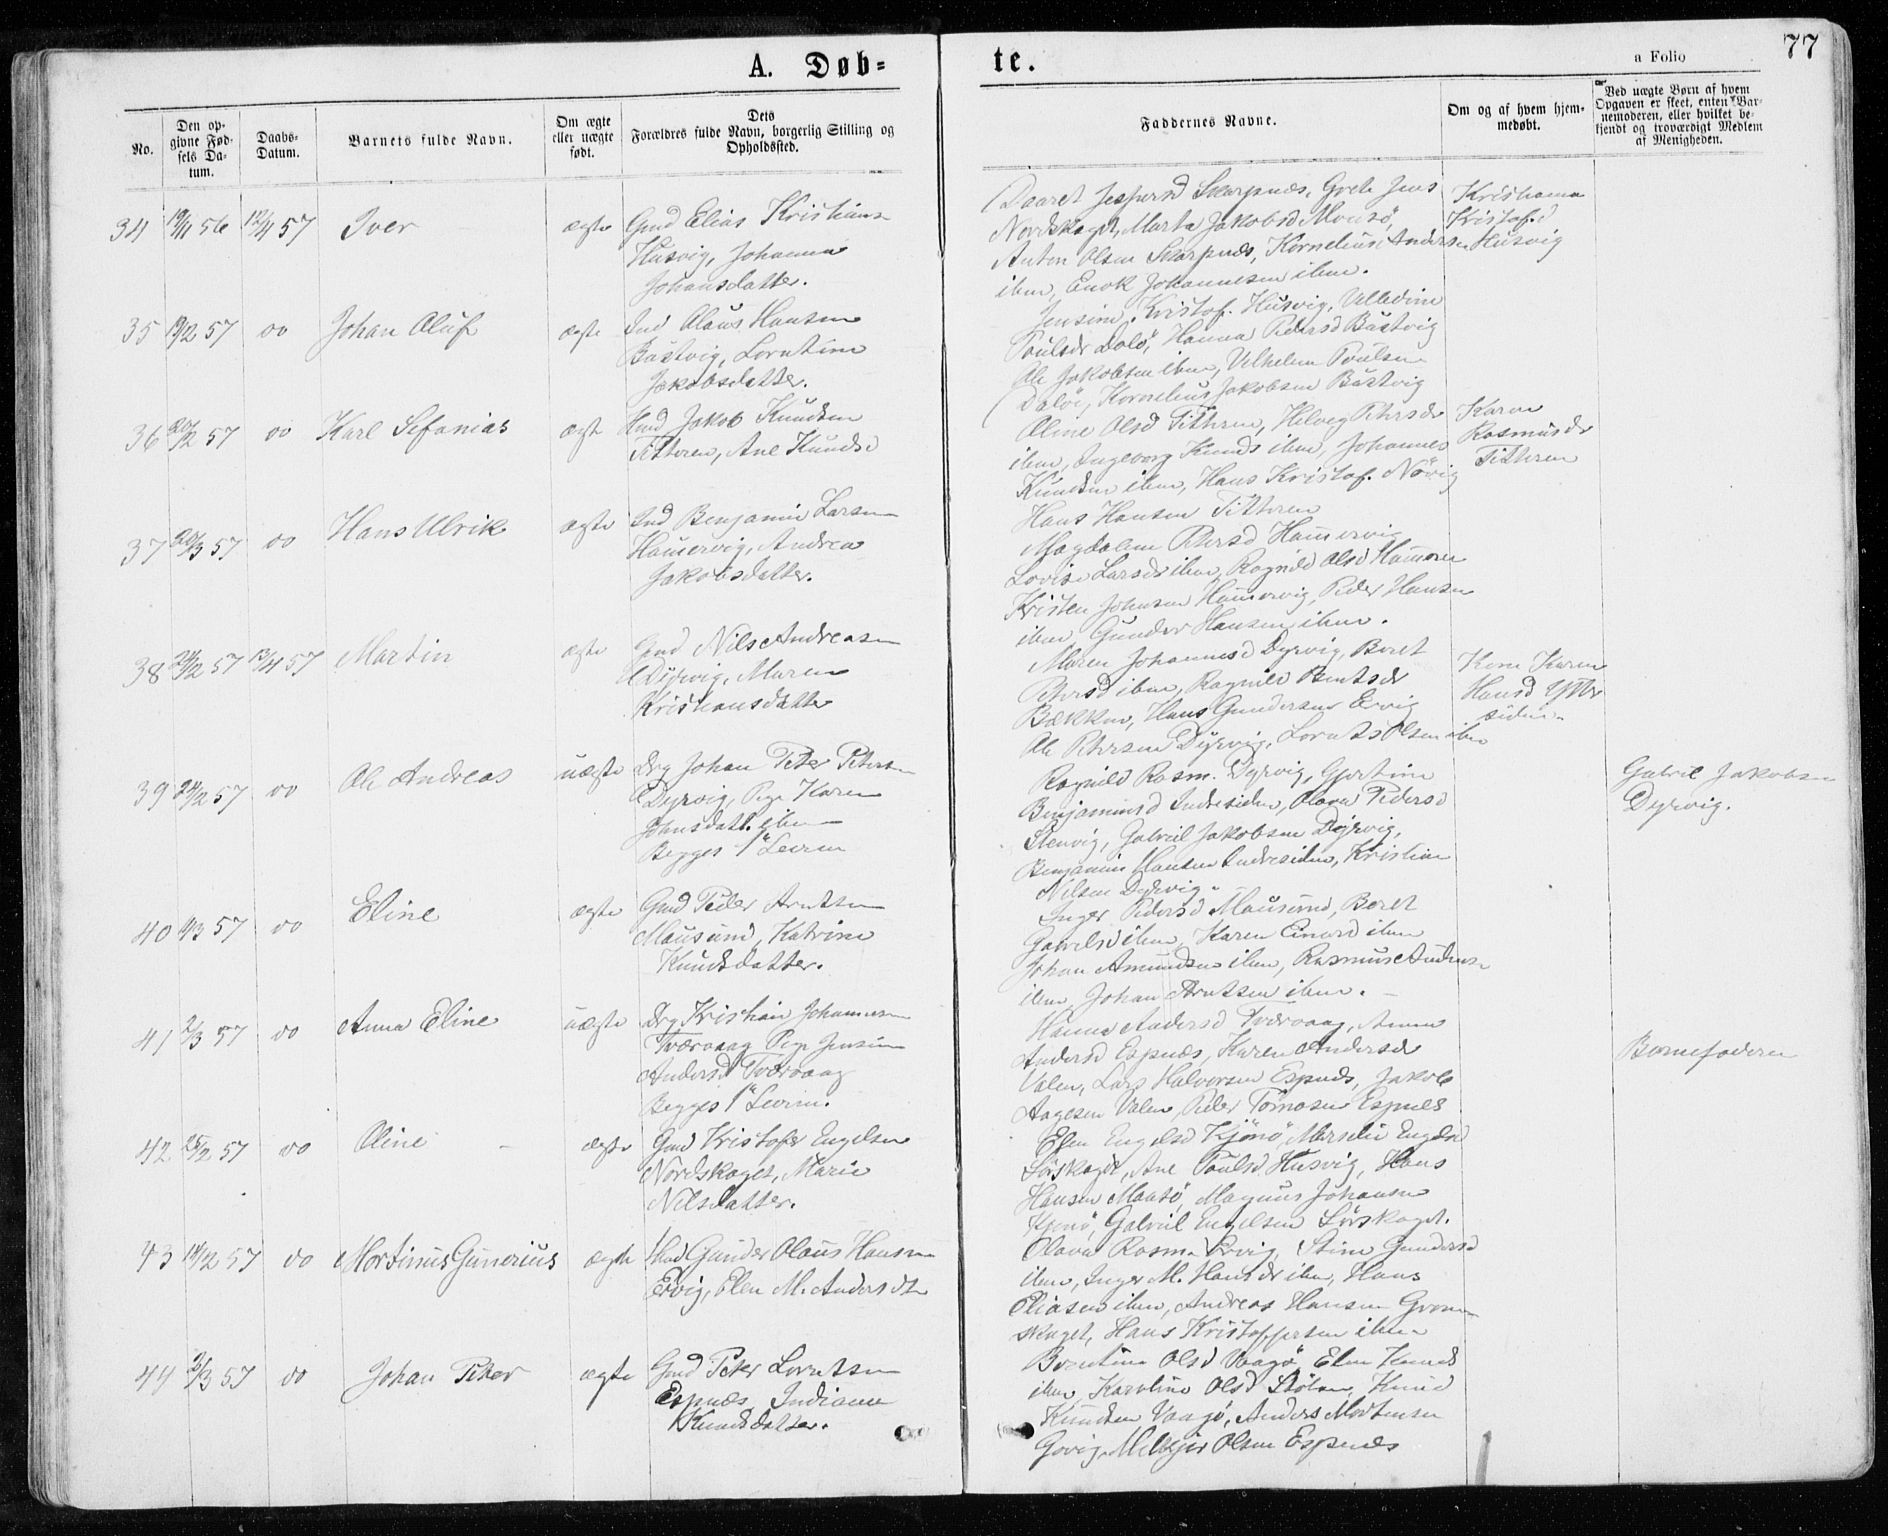 A. Døb=
te.
a Folio
77
No.
Den op-
givne Fød-
sels Da-
tum.
Daabs-
Datum.
Barnets fulde Navn.
Om ægte
eller uægte
født.
Dets
Forældres fulde Navn, borgerlig Stilling og
Opholdssted.
Faddernes Navne.
Om og af hvem hjem-
medøbt.
Ved uægte Børn af hvem
Opgaven er skeet, enten Bar-
nemoderen, eller hvilket be-
kjendt og troværdigt Medlem
af Menigheden.
34 19/11 56 12/4 57 Iver ægte Gmd Elias Kristians
Husvig, Johanna
Johansdatter.
Daaret Jespersd Skarpnes, Grete Jens
Nordskaget, Marta Jakobsd Mousø,
Anton Olsen Skarpnes, Kornelius Andersen
ibm, Enok Johannesen ibm.
Kristiana
Kristof.d
Husvig
35 19/2 57 do Johan Oluf ægte Ind Olaus Hansen
Bustvig, Lorntine
Jakobsdatter.
Jensine Kristof. Husvig, Velledine
Poulsdr Dolø, Hanna Pedersd Bustvig
Ole Jakobsen ibm, Vilhelm Poulsen
Doløe, Kornelius Jakobsen Bustvig
36 20/2 57 do Karl Sefanias ægte Hmd Jakob Knudsen
Titteren, Ane Knudsd
Oline Olsd Titteren, Helveg Petersdr
ibm, Ingeborg Knuds ibm, Johannes
Knudsen ibm, Hans Kristof. Nørvig
Hans Hansen Titteren
Karen
Rasmusdr
Titteren
37 20/3 57 do Hans Ulrik ægte Ind Benjamin Larsen
Hamervig, Andrea
Jakobsdatter.
Magdalene Petersd Hamervig
Lovise Larsdr ibm, Ragnild Olsd Hameren
Kristen Johnsen Hamervig, Peder Hansen
ibm Gunder Hansen ibm.
38 24/2 57 13/4 57 Martin ægte Gmd Nils Andreasen
Dyrvig, Maren
Kristiansdatter
Maren Johannesd Dyrvig, Beret
Petersd ibm, Ragnild Bentsdr
Bækken, Hans Gundersen Ervig
Ole Petersen Dyrvig, Lornts Olsen ibm
Kone Karen
Hansd Ytter
siden.
39 24/2 57 do Ole Andreas uægte Drg Johan Peter Peters
Dyrvig, Pige Karen
Johnsdatt. ibm
Begges 1ste Leierm
Ragnild Rasm. Dyrvig, Gjertine
Benjaminsd Indresiden, Olava Pedersd
Stenvig, Gabriel Jakobsen Dyrvig,
Benjamin Hansen Indresiden, Kristian
Nilsen Dyrvig.
Gabriel Jakobsen
Dyrvig.
40 1/3 57 do Eline ægte Gmd Peder Arntsen
Mausund, Katrine
Knudsdatter.
Inger Pedersd Mausund, Beret
Gabrielsd ibm Karen Einersd ibm
Johan Amundsen ibm, Rasmus Anders
ibm Johan Arntsen ibm.
41 2/3 57 do Anna Eline uægte Drg Kristian Johannes
Tværvaag Pige Jensine
Andersd Tværvaag
Begges 1ste Leierm.
Hanna Andersd Tværvaag, Anne
Andersd Espnes, Karen Andersdr
Valen, Lars Halvorsen Espnes, Jakob
Aagesen Valen, Peder Tomasen Espnes
Barnefaderen
42 25/2 57 do Oline ægte Gmd Kristofer Engelsen
Nordskaget, Marie
Nilsdatter.
Elen Engelsd Kjønø, Merselie Engelsd
Sørskaget, Ane Poulsd Husvig, Hans
Hansen Mansø, Magnus Johansen
Kjønø, Gabriel Engelsen Sørskaget.
43 14/2 57 do Mortinus Gunerius ægte Hmd Gunder Olaus Hansen
Ervig, Elen M. Andersdtr
Olava Rasm. Ervig, Stine Gundersd
ibm, Inger M. Hansdr ibm, Hans
Eliasen ibm, Andreas Hansen Grøn-
skaget, Hans Kristoffersen ibm
44 2/3 57 do Johan Peter ægte Gmd Peter Lorntsen
Espnæs, Indiane
Knudsdatter.
Berntine Olsd Vaagø, Elen Knuds
ibm Karoline Olsd Stølan, Knud
Knudsen Vaagø, Anders Mortensen
Gjøvig, Melkjer Olsen Espnæs